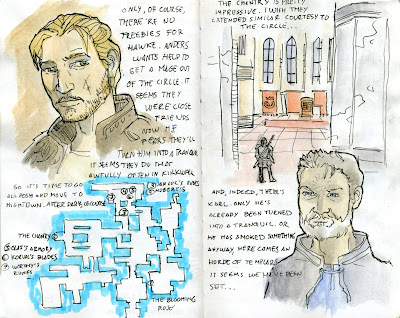 ONLY, OF COURSE,
THERE'RE NO
FREEBIES FOR
HAWKE. ANDERS
WANTS HELP TO
GET A MAGE OUT
OF THE CIRCLE. IT
SEEMS THEY
WERE CLOSE
FRIENDS
NOW HE
FEARS THEY'LL
TURN HIM INTO A TRANQUIL
IT SEEMS THEY DO THAT
AWFULLY OFTEN IN KIRKWALL
SO IT'S TIME TO GO
ALL POSH AND MOVE TO
HIGHTOWN. AFTER DARK, OF COURSE
ROBES
HUBERT'S
THE CHANTRY
ARMORY
KORVAL'S BLADES
WORTHY'S
RUNES
THE BLOOMING
ROSE
THE CHANTRY IS PRETTY
IMPRESSIVE. I WISH THEY
EXTENDED SIMILAR COURTESY TO
THE CIRCLE...
AND, INDEED, THERE'S
KARL. ONLY HE'S
ALREADY BEEN TURNED
INTO A TRANQUIL. OR
HE HAS SMOKED SOMETHING
ANYWAY, HERE COMES AN
HORDE OF TEMPLARS
IT SEEMS WE HAVE BEEN
SET...